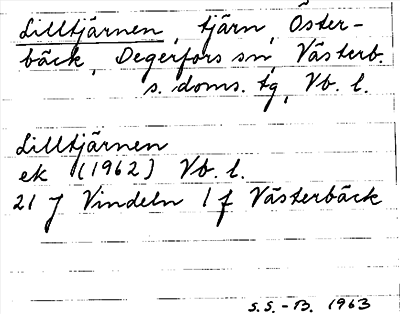 Lilltjärnen, tjärn, Öster-
bäck, Degerfors sn, Västerb.
s. doms. tg, Vb. l.
Lilltjärnen
ek (1962) Vb. l.
21 J Vindeln 1 f Västerbäck
S.S.-B. 1963